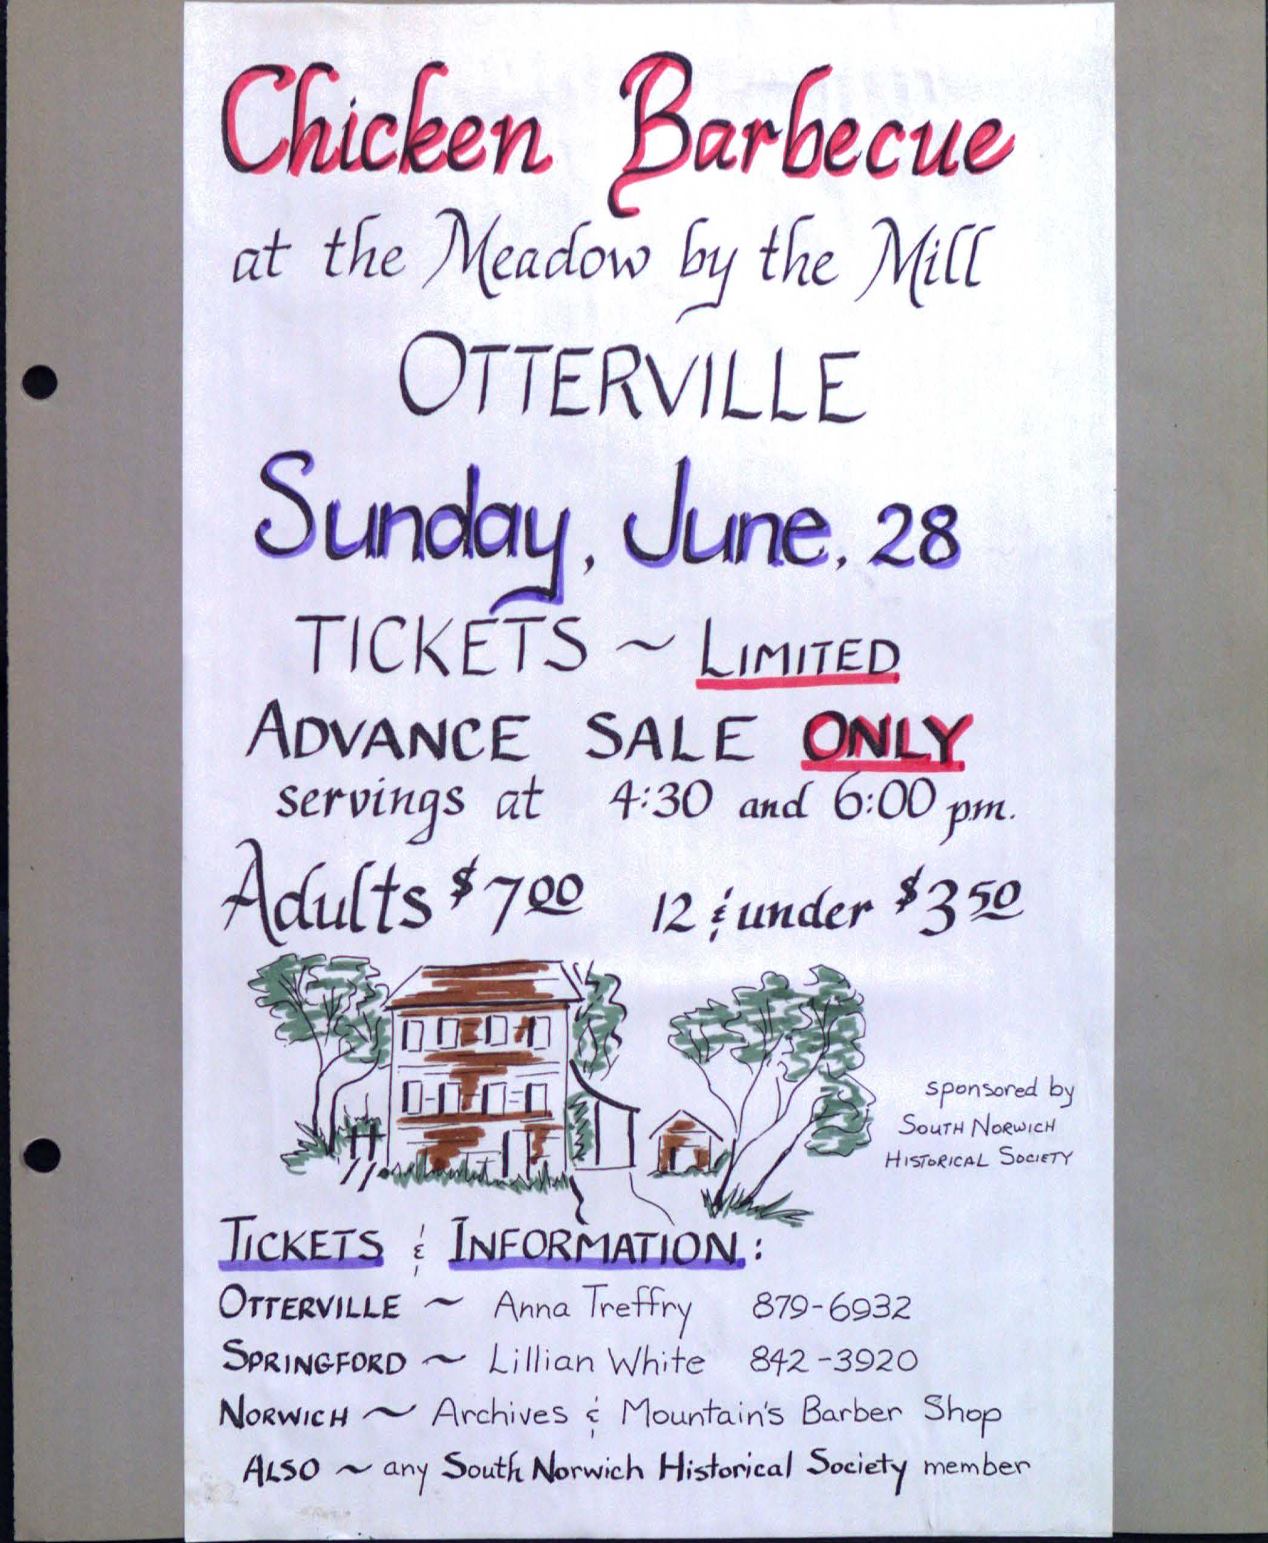 Chicken Barbecue
at the Meadow by the Mill
OTTERVILLE
Sunday, June, 28
TICKETS ~ LIMITED
ADVANCE SALE ONLY
servings at 4:30 and 6:00 pm.
Adults $7.00 12 & under $3.50
sponsored by
SOUTH NORWICH
HISTORICAL SOCIETY
TICKETS & INFORMATION:
OTTERVILLE ~ Anna Treffry 879-6932
SPRINGFORD ~ Lillian White 842-3920
NORWICH ~ Archives & Mountain's Barber Shop
ALSO ~ any South Norwich Historical Society member